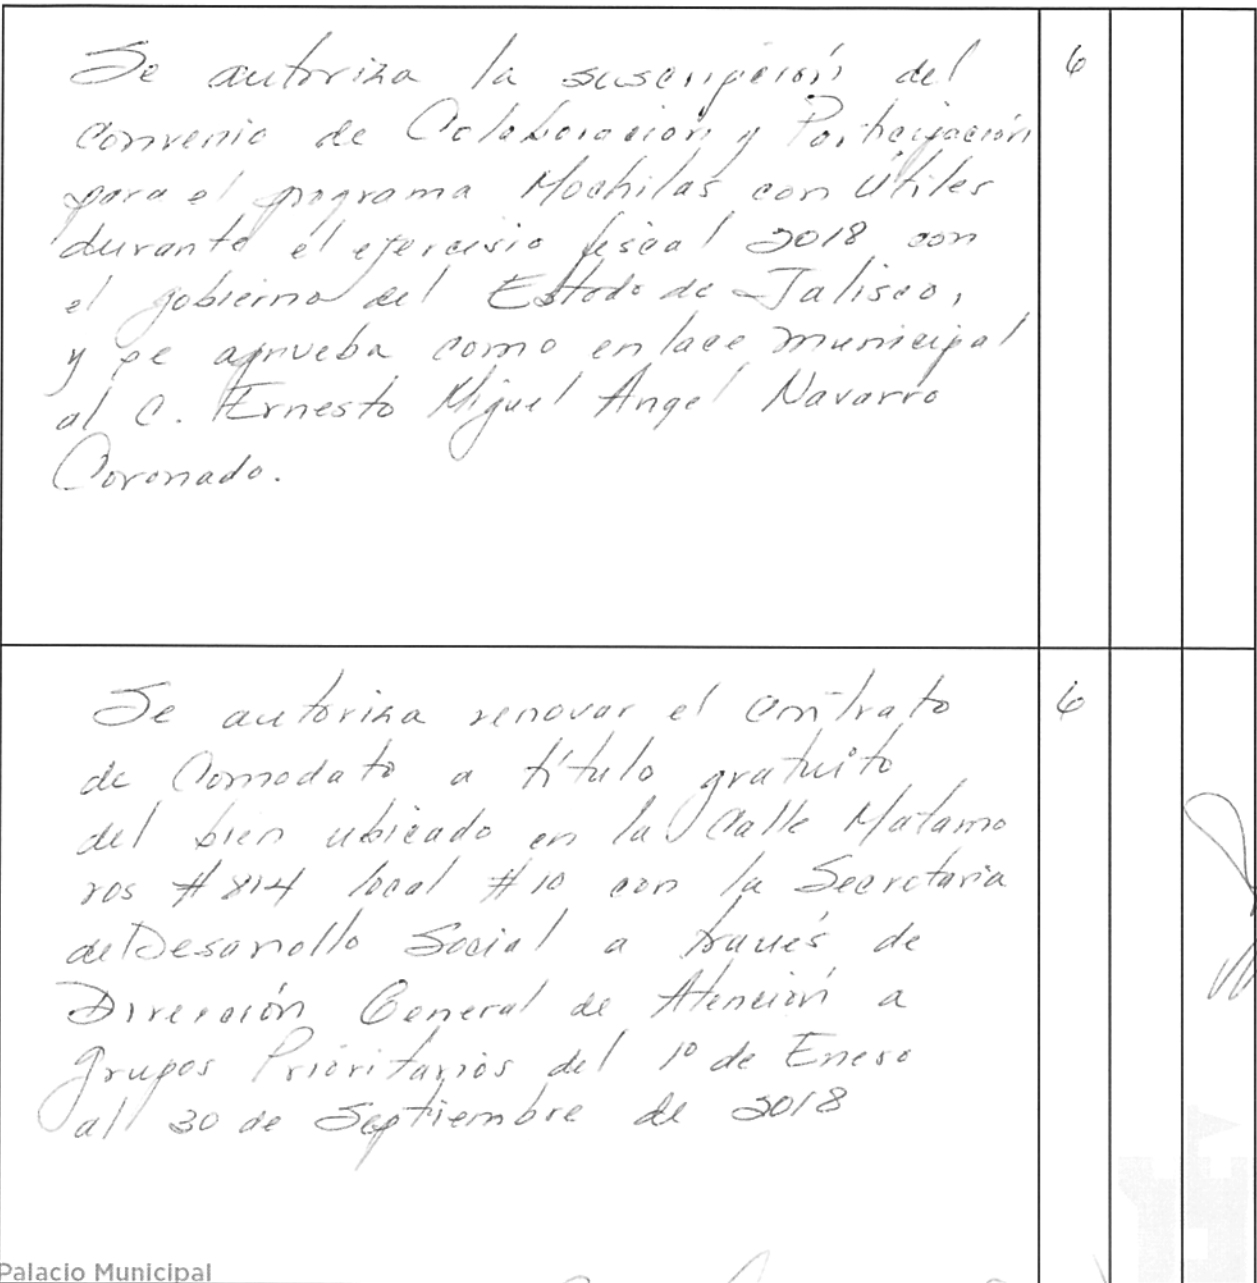 Se autoriza la suscripción del 6
convenio de Colaboración y Participación
para el programa Mochilas con Utiles
durante el ejercisio fiscal 2018 con
el gobierno del Estado de Jalisco,
y se aprueba como enlace municipal
al C. Ernesto Miguel Angel Navarro
Coronado.
Se autoriza renovar el contrato 6
de Comodato a título gratuito
del bien ubicado en la Calle Matamo
ros #814 local #10 con la Secretaria
de Desarrollo Social a través de
Dirección General de Atención a
grupos Prioritarios del 1º de Enero
al 30 de Septiembre de 2018
Palacio Municipal